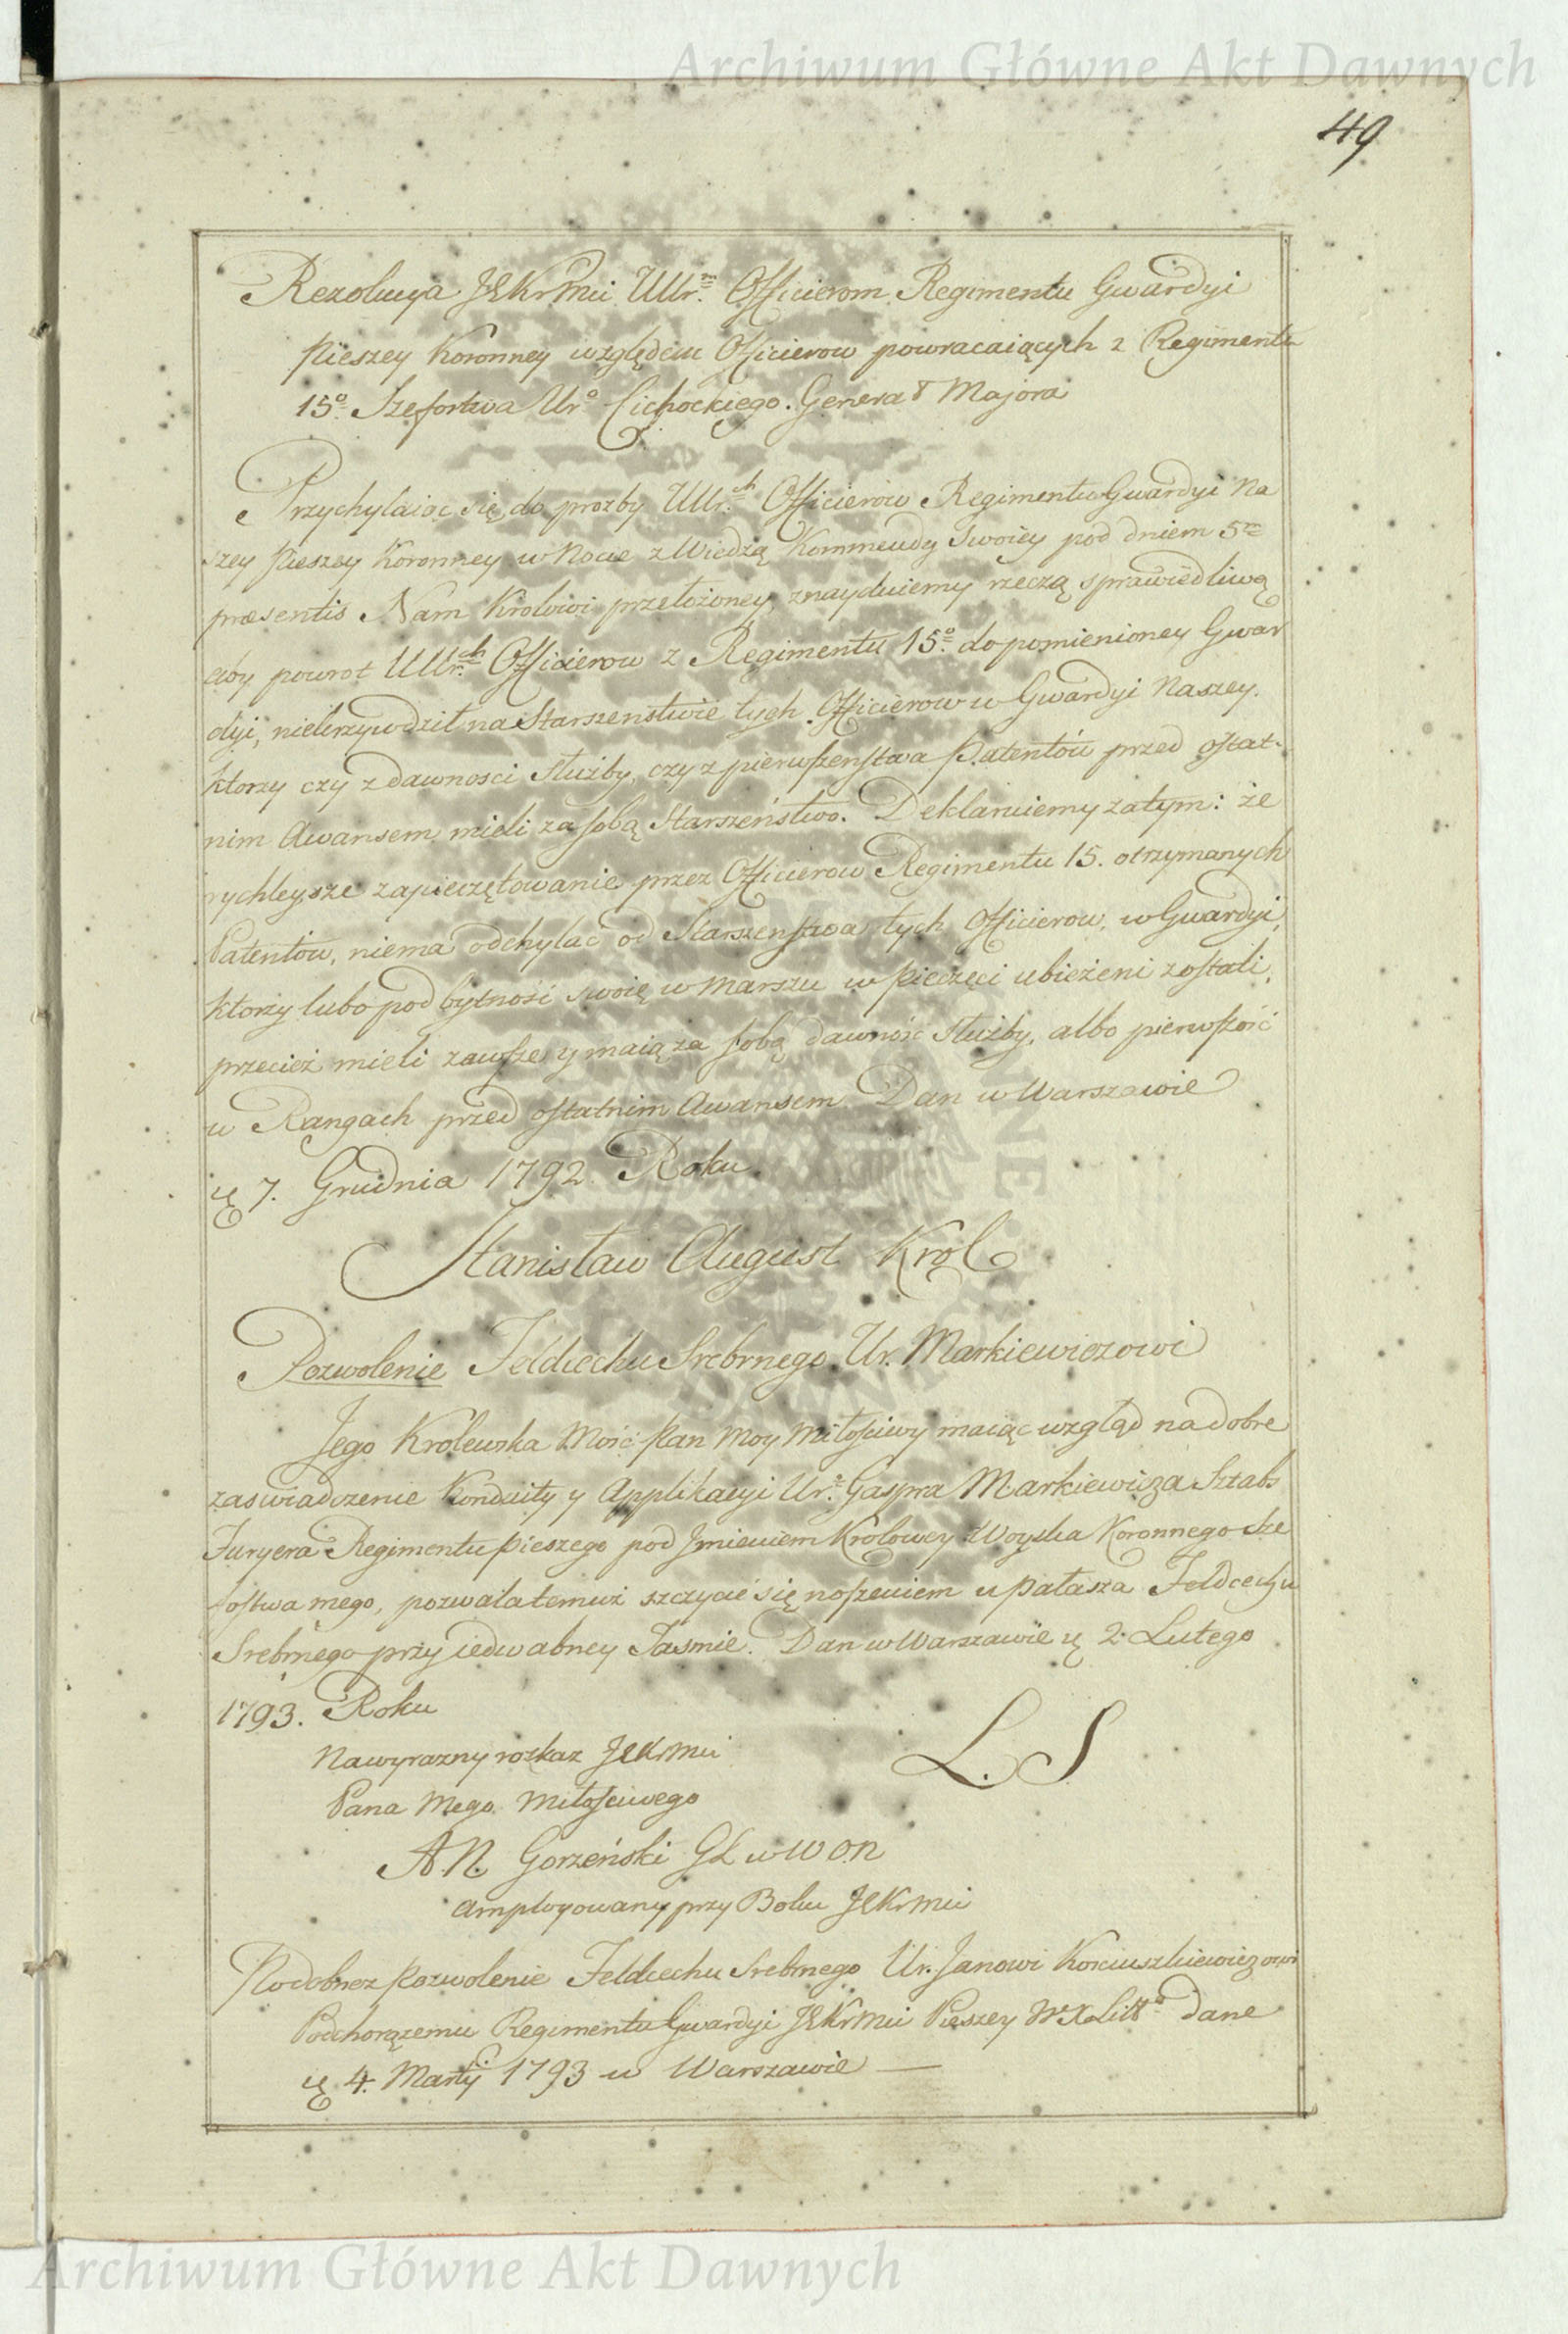 Archiwum Główne Akt Dawnych
49
Rezolucya JEKrMci UUr.m Officierom Regimentu Gwardyi
Pieszey Koronney względem Officierow powracaiących z Regimentu
15o Szefostwa Uro Cichockiego Generał Majora
Przychylaiąc się do prozby UUr.ch Officierów Regimentu Gwardyi Na
szey Pieszey Koronney w Nocie z Wiedzą Kommendy Swoiey pod dniem 5m
præsentis Nam Krolowi przełożoney, znayduiemy rzeczą sprawiedliwą
aby powrot UUr.ch Officierow z Regimentu 15o do pomienioney Gwar
dyi, niekrzywdził na Starszenstwie tych Officierow w Gwardyi Naszey.
ktorzy czy z dawnosci służby, czy z pierwszenstwa Patentów przed ostat-
nim Awansem mieli za sobą Starszeństwo. Deklaruiemy zatym: że
rychleysze zapieczętowanie przez Officierow Regimentu 15. otrzymanych
Patentow, niema odchylać od Starszenstwa tych Officierow, w Gwardyi,
ktorzy lubo pod bytność swoię w Marszu w Pieczęci ubieżeni zostali,
przecież mieli zawsze y maią za sobą dawność służby, albo pierwszość
w Rangach przed ostatnim Awansem. Dan w Warszawie
ię 7. Grudnia 1792. Roku
Stanisław August Król
Pozwolenie Feldcechu Srebrnego Ur. Markiewiczowi
Jego Królewska Mość Pan Moy Miłościwy maiąc wzgląd na dobre
zaswiadczenie Konduity y Applikacyi Uro Gaspra Markiewicza Sztabs
Furyera Regimentu Pieszego pod Jmieniem Krolowey Woyska Koronnego Sze
fostwa mego, pozwala temuż szczycić się noszeniem u Pałasza Feldcechu
Srebrnego przy iedwabney Tasmie. Dan w Warszawie ię 2. Lutego
1793. Roku
Na wyrazny rozkaz JEKrMci
Pana Mego Miłościwego
L. S
A.N. Gorzeński GL w W O.N
amployowany przy Boku JEKrMci
Podobnez Pozwolenie Feldcechu Srebrnego Ur. Janowi Kosciuszkiewiczowi
Podchorążemu Regimentu Gwardyi JEKrMci Pieszey W X Litto dane
ię 4. Martij 1793 w Warszawie —
Archiwum Główne Akt Dawnych